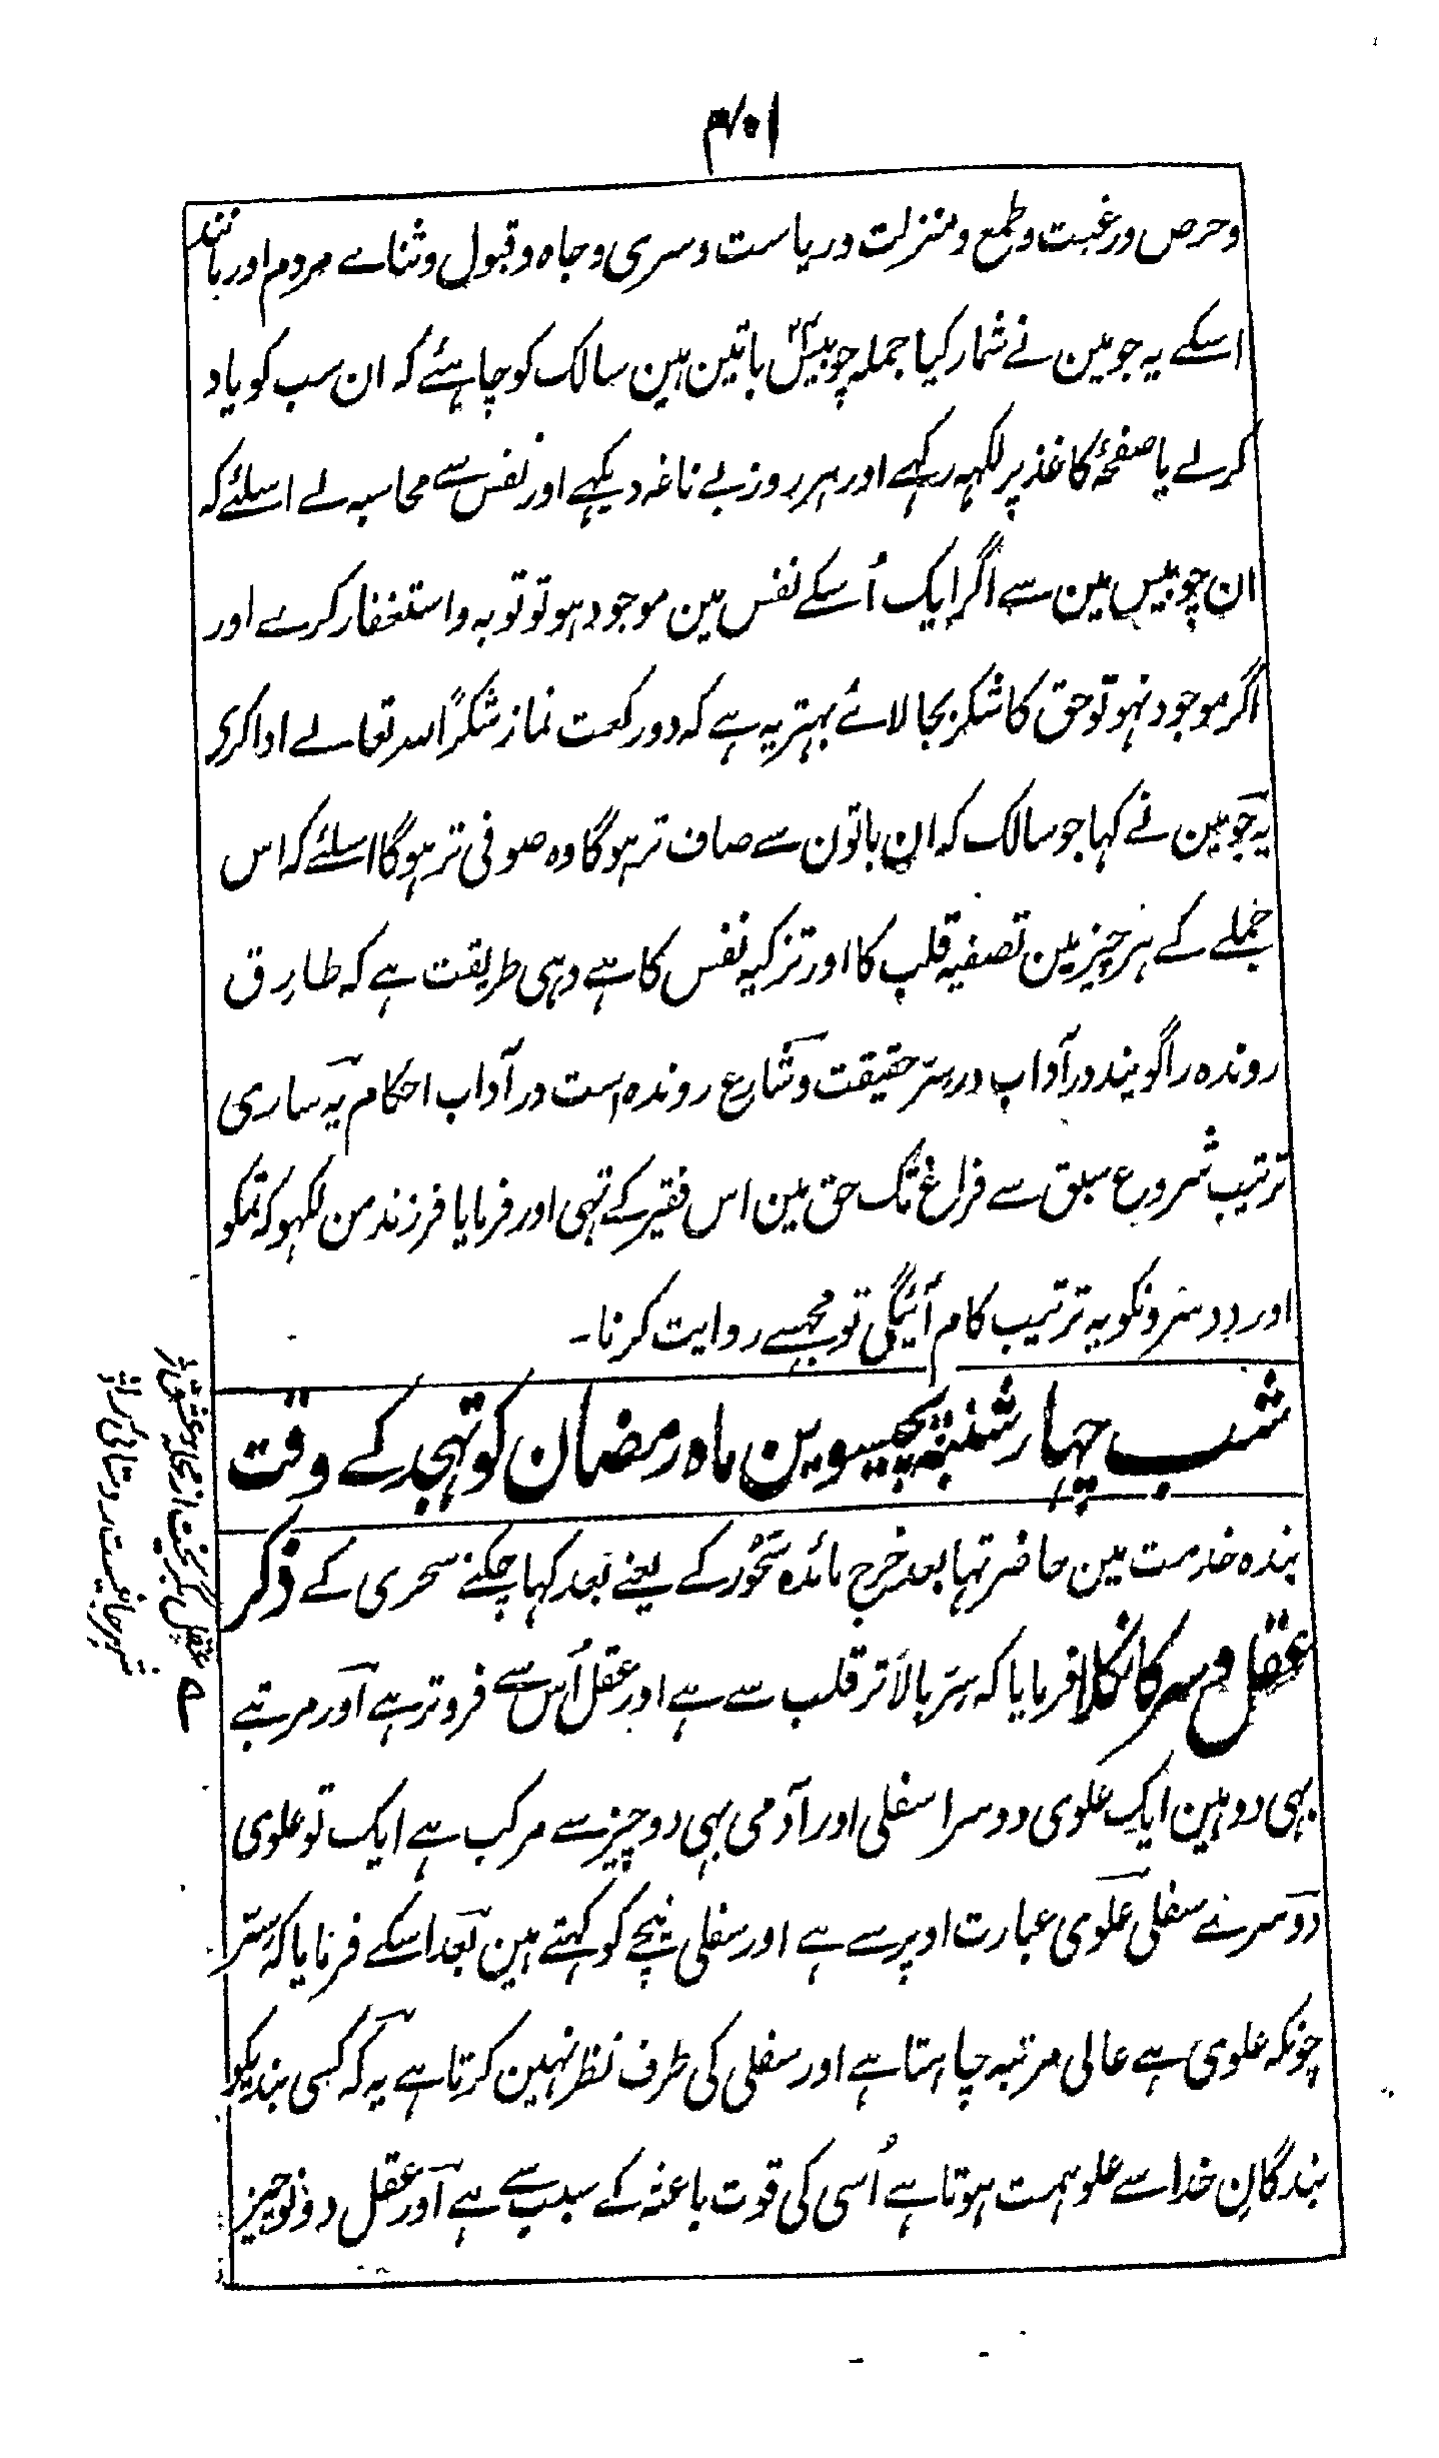 وحرص ورغبت وطمع ومنزلت وریاست وسری وجاه وقبول وثناے مردم اور مانند
اسکے یہ جو مین نے شمار کیا جملہ چوبیس۲۴ باتین ہین سالک کو چاہئے کہ ان سب کو یاد
کرلے یا صفحۂ کاغذ پر لکھہ رکہے اور ہر روز بے ناغہ دیکہے اور نفس سے محاسبہ لے اسلئے کہ
ان چوبیس مین سے اگر ایک اُسکے نفس مین موجود ہو تو توبہ واستغفار کرے اور
اگر موجود نہو تو حق کا شکر بجا لائے بہتر یہ ہے کہ دو رکعت نماز شکرًا للہ تعالے ادا کری
یہ جو مین نے کہا جو سالک کہ ان باتون سے صاف تر ہوگا وہ صوفی تر ہوگا اسلئے کہ اس
جملے کے ہر چیز مین تصفیہ قلب کا اور تزکیہ نفس کا ہے وہی طریقت ہے کہ طارِق
روندہ را گویند در آداب در سِرّ حقیقت وشارع روندہ است در آداب احکام یہ ساری
ترتیب شروع سبق سے فراغ تک حق مین اس فقیر کے تہی اور فرمایا فرزند من لکہو کہ تمکو
اور دوسرونکو یہ ترتیب کام آئیگی تو مجہسے روایت کرنا۔
شب چہار شنبہ پچیسوین ماہ رمضان کو تہجد کے وقت
بندہ خدمت مین حاضر تہا بعد خرج مائدہ سَحُور کے یعنے بعد کہا چکنے سحری کے ذکر
عقل و سر کا نکلا فرمایا کہ سِرّ بالا تر قلب سے ہے اور عقل اُس سے فروتر ہے اور مرتبے
بہی دو ہین ایک علوی دوسرا سفلی اور آدمی بہی دو چیز سے مرکب ہے ایک تو علوی
دوسرے سفلی علوی عبارت اوپر سے ہے اور سفلی نیچے کو کہتے ہین بعد اسکے فرمایا کہ سِرّ
چونکہ علوی ہے عالی مرتبہ چاہتا ہے اور سفلی کی طرف نظر نہین کرتا ہے یہ کہ کسی بندیکو
بندگانِ خدا سے علو ہمت ہوتا ہے اُسی کی قوت باعثہ کے سبب سے ہے اور عقل دونو چیز